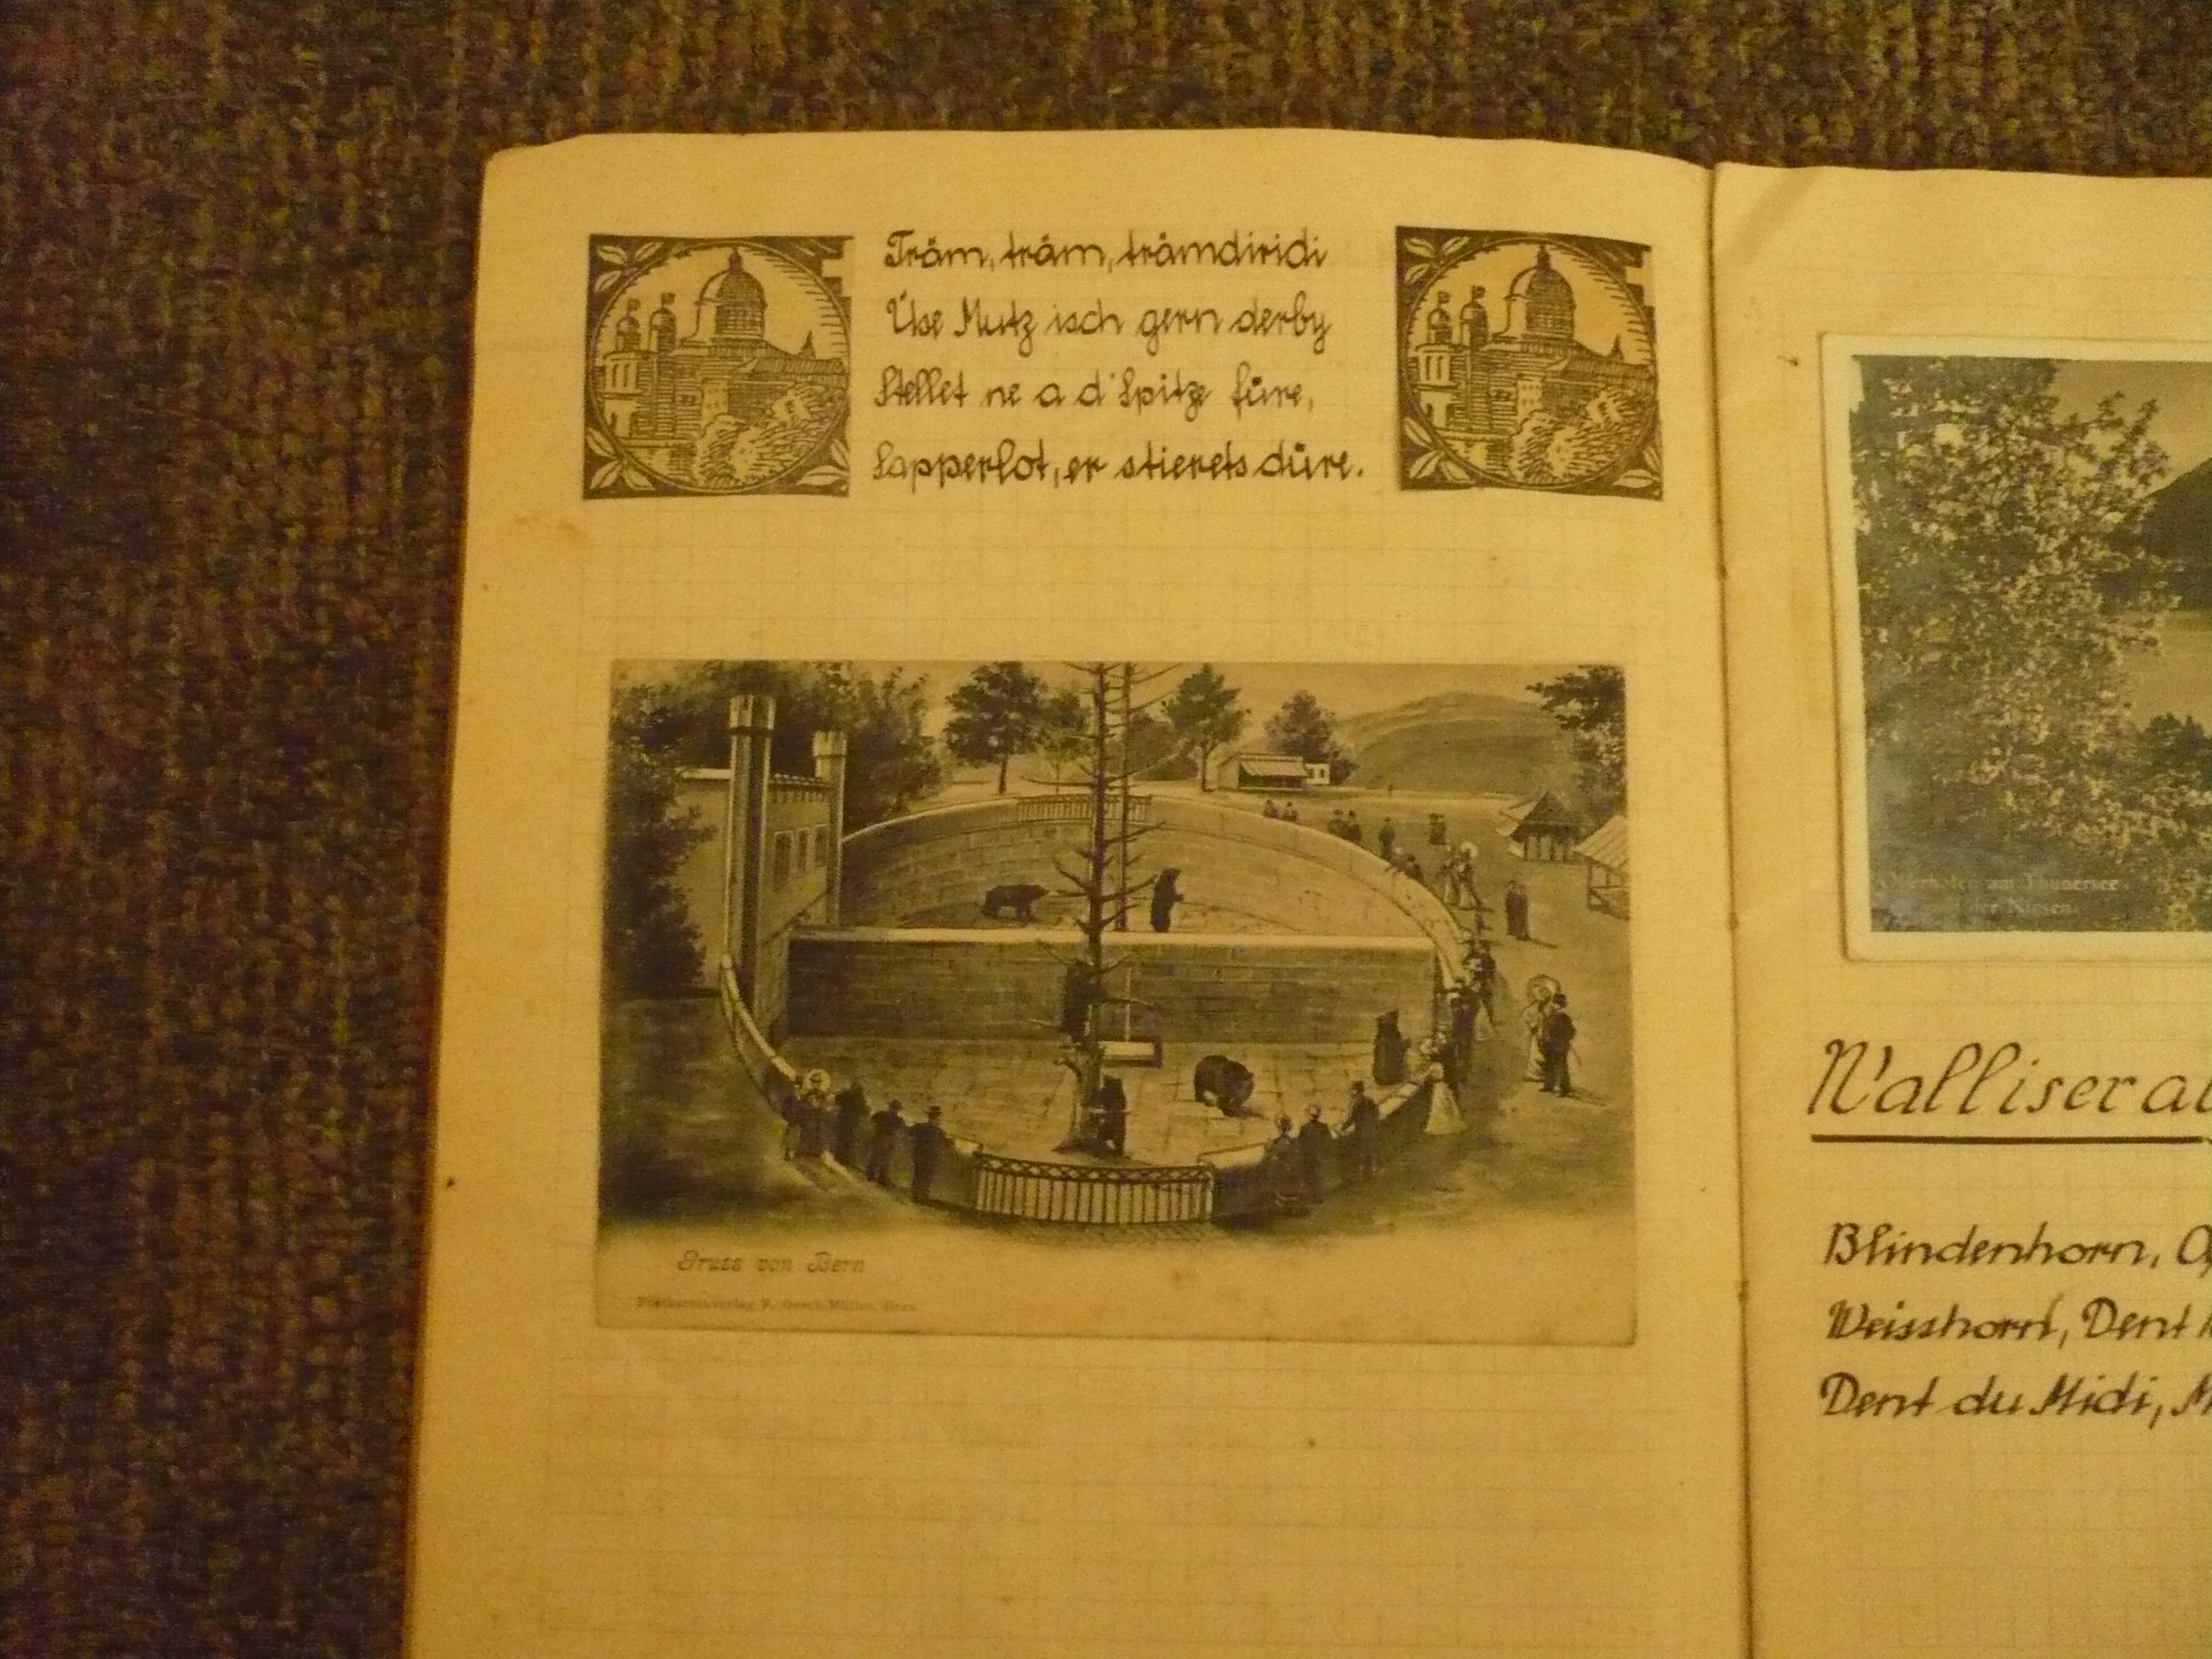 Träm, träm, trämdiridi
Üse Mutz isch gern derby
Stellet ne a d'Spitze füre,
Sapperlot, er stierets düre.
Gruss von Bern
Postkartenverlag F. Bern
am Thunersee
Niesen.
Walliser
Blindenhorn,
Weisshorn, Dent
Dent du Midi,